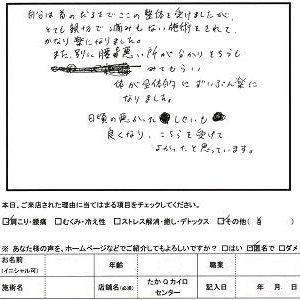 自分は首のだるさでここの整体を受けましたが、
とても親切で痛みもない施術をされて
かなり楽になりました。
また、別に腰も悪い所が分かりそちらも
みてもらい
体が全体的にずいぶん楽に
なりました。
日頃の悪かった しせいも
良くなり、こちらを受けて
よかったと思っています。
本日、ご来店された理由に当てはまる項目をチェックしてください。
☑肩こり・腰痛 □むくみ・冷え性 □ストレス解消・癒し・デトックス ☑その他( 首 )
※ あなた様の声を、ホームページなどでご紹介してもよろしいですか? □はい ☑匿名で □ダメ
お名前 年齢 職業
(イニシャル可)
施術名 店舗名(必須) たかQカイロ
センター 記入日 年 月 日